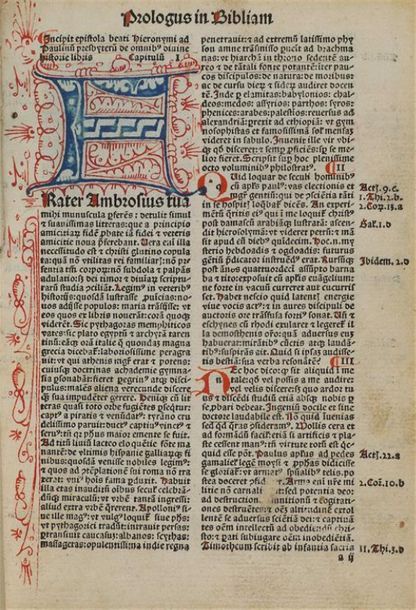 Prologus in Bibliam
Incipit epistola beati Hieronymi ad
Paulinū presbyterū de omnibꝰ diuine
historie libris Capitulū I
Frater Ambrosius tua
mihi munuscula ꝑferēs: detulit simul
et suauissimas litteras: que a principio
amicitiaꝝ fidē
amicitie noua
necessitudo est et christi glutino copula
ta: quā nō vtilitas rei familiaris: nō pre
sentia tm̄ corpoꝝ: nō subdola et palpās
adulatio: sed dei timor et diuinaꝝ scriptu
raꝝ studia conciliāt. Legimꝰ in veteribꝰ
historijs: quosdā lustrasse ꝓuincias: no
uos adijsse populos: maria trāsisse: vt
eos quos ex libris nouerāt: corā quoqꝫ
viderēt. Sic pythagoras memphiticos
vates: sic plato egyptū et archytā taren
tinū: eāqꝫ orā italie
grecia dicebat: laboriosissime peragra
uit: vt qui athenis mgr̄ erat et potens:
cuiusqꝫ doctrinas achademie gymna
sia ꝑsonabāt: fieret ꝑegrinꝰ atqꝫ disci
pulus: malēs aliena verecunde discere:
ꝗ̄ sua impudēter gerere. Deniqꝫ cū lit
teras quasi toto orbe fugiētes ꝑseqtur:
captꝰ a piratis et venūdatꝰ: tyrāno cru
delissimo paruit: ductꝰ captiuꝰ vinctꝰ et
Ad titū liuiū lacteo eloquētie fōte ma
nantē: de vltimis hispanie galliarūqꝫ fi
nibus: quosdā venisse nobiles legimꝰ: et
quos ad ꝯtēplationē sui roma nō tra
xerat: vniꝰ hoīs fama ꝑduxit. Habuit
illa etas inauditū olbus seculis celebrā
dūqꝫ miraculū: vt vrbē tantā ingressi:
aliud extra vrbē quererent. Apollonius si
ue ille magꝰ: vt vulgꝰ loquit̄ siue phūs:
vt pythagorici tradūt: intrauit persas:
ptransiuit caucasus: albanos: scythas:
massagetas: opulentissima indie regna
penetrauit: et ad extremū latissimo phy
son amne trāsmisso puenit ad brachma
nas: vt hiarchā in throno sedentē au
reo et de tātali fonte potantē: inter pau
cos discipulos: de natura: de moribus
ac de cursu dierū et siderū audiret docen
tē. Inde ꝑ elamitas: babylonios: chal
deos: medos: assyrios: parthos: syros
phenices: arabes: palestinos: reuersus ad
alexandriā: perrexit ad ethiopiā: vt gym
nosophistas et famosissimā solis mensaꝫ
videret in sabulo. Inuenit ille vir vbi
qꝫ qd̄ disceret: et semp ꝓficiēs: semp se me
lior fieret. Scripsit sup hoc plenissime
octo voluminibꝰ philostratꝰ. CII
Quid loquar de seculi hominibꝰ
cū apls paulꝰ: vas electionis et
mgr̄ gentiū: qui de ꝯscientia tāti
in se hospitis loqbat̄ dicēs. An experi
mētū queritis eiꝰ qui in me loquit̄ christus:
post damascū arabiāqꝫ lustratā: ascen
dit hierosolymā: vt videret petrū: et mā
sit apud eū diebꝰ quindecim. Hoc enim my
sterio hebdoadis et ogdoadis: futurus
gētiū p̄dicator instruēd' erat. Rursūqꝫ
post ānos quattuordecī assūpto barna
ba et tito: exposuit cū aplis euāgeliū:
ne forte in vacuū curreret aut cucurris
set. Habet nescio quid latentis energie
viue vocis actꝰ: et in aures discipuli de
auctoris ore trāsfusa fortiꝰ sonat. Vn̄ et
eschynes cū rhodi exularet et legeret il
la demosthenis orō: quā aduersus eū
habuerat: mirātibꝰ cūctis atqꝫ laudā
tibꝰ: suspirās ait. Quid si ipsā audisse
tis bestiā: sua verba resonātē? CIII
Nec hoc dico: qꝫ sit aliquid in me
tale: qd̄ vel possis a me audire:
vel velis discere: sed quo ardor tu
us et discēdi studiū etiā absqꝫ nobis p
se ꝓbari debeat. Ingeniū docile et sine
doctore laudabile est. Nō quid inuenias
sed qd̄ q̄ras ꝯsideramꝰ. Mollis cera et
ad formādū facilis: etiā si artificis et pla
ste cessent manꝰ: tn̄ virtute totū est: qc
quid esse pōt. Paulus apls ad pedes
gamalielis legē moysi et ꝓphetas didicisse
se gloriat̄: vt armatꝰ spūalibꝰ telis: po
stea doceret ꝯfidēter. Arma em̄ nr̄e mi
litie nō carnalia sed potentia deo:
ad destructionē munitionū et cogitati
ones destruētes: et oēm altitudinē extol
lentē se aduersus scientiā dei: et captiuā
tes oēm intellectū ad obediēdū christo:
et parati subiugare oēm inobedientiā.
Timotheum scribit ab infantia sacris
a ij
Act. 9. c.
1. Thi. 2. b
2. Coꝝ. 13. a
Gal. 1. d
Ibidem. 2. d
Act. 22. a
2. Coꝝ. 10. b
II. Thi. 3. d